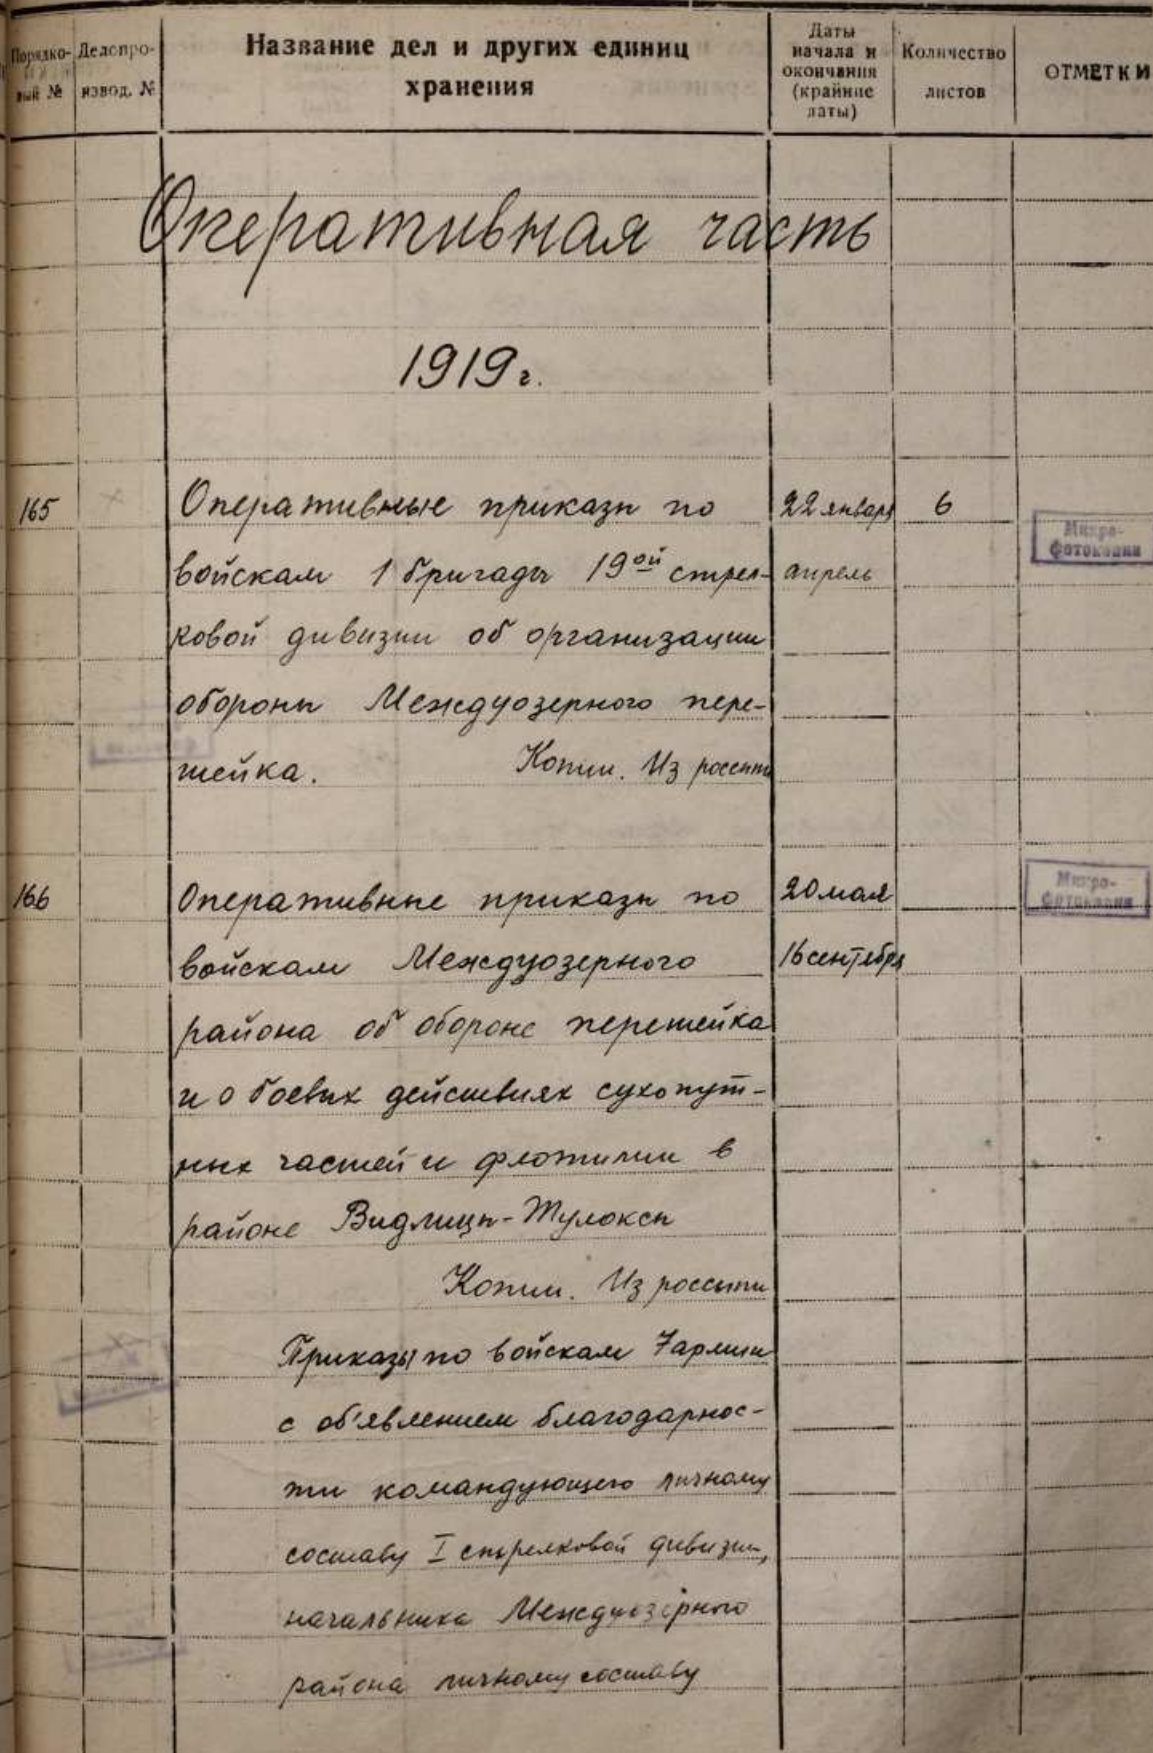 Порядко-
вый №
Делопро-
извод. №
Название дел и других единиц
хранения
Даты
начала и
окончания
(крайние
даты)
Количество
листов
ОТМЕТКИ
Оперативная часть
1919 г.
165
Оперативные приказы по
22 января
6
войскам 1 бригады 19ой стрел-
апрель
Микро-
фотокопии
ковой дивизии об организации
обороны Междуозерного пере-
шейка. Копии. Из россыпи
166
Оперативные приказы по
20 мая
Микро-
фотокопии
войскам Междуозерного
16 сентября
района об обороне перешейка
и о боевых действиях сухопут-
ных частей и флотилии в
районе Видлицы-Тулоксы
Копии. Из россыпи
Приказы по войскам 7 армии
с об'явлением благодарнос-
ти командующего личному
составу I стрелковой дивизии,
начальника Междуозерного
района личному составу